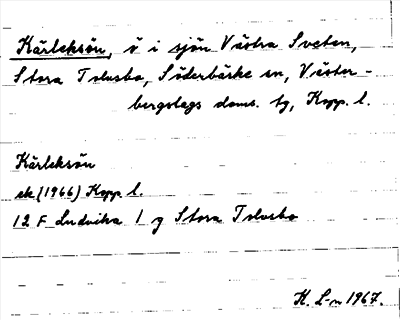 Kärleksön, ö i sjön Västra Sveten,
Stora Tolvsbo, Söderbärke sn, Väster-
bergslags doms. tg, Kopp. l.
Kärleksön
ek (1966) Kopp. l.
12 F Ludvika 1 g Stora Tolvsbo
K. L-n 1967.